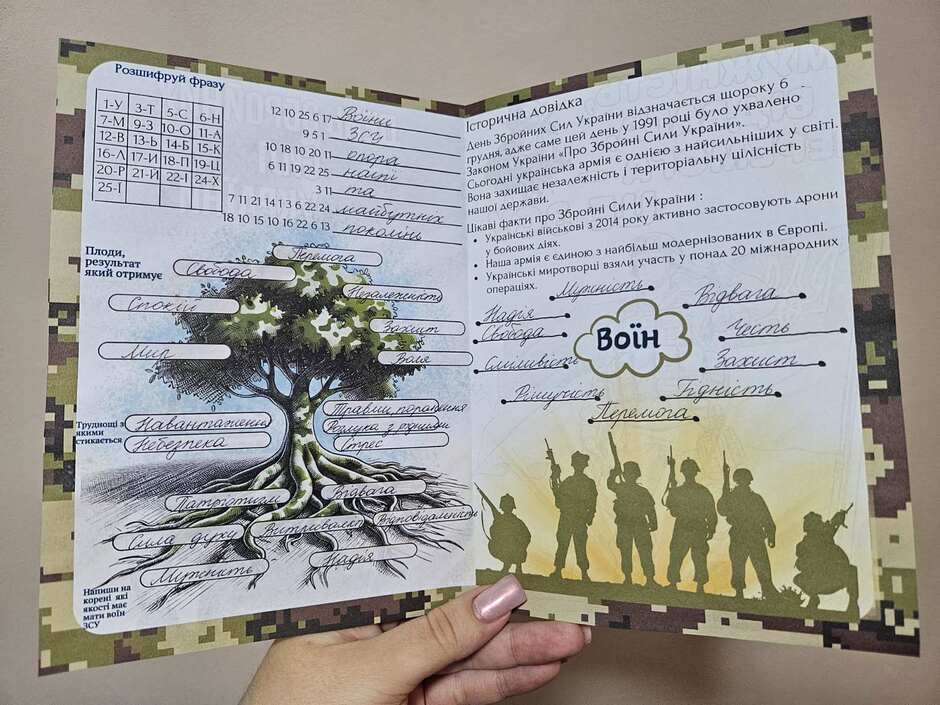 Розшифруй фразу
1-У 3-Т 5-С 6-Н
7-М 9-З 10-О 11-А
12-В 13-Ь 14-Б 15-К
16-Л 17-И 18-П 19-Ц
20-Р 21-Й 22-І 24-Х
25-Ї
12 10 25 6 17 Воїни
9 5 1 ЗСУ
10 18 10 20 11 опора
6 11 19 22 25 нації
3 11 та
7 11 21 14 1 3 6 22 24 майбутніх
18 10 15 10 16 22 6 13 поколінь
Плоди,
результат
який отримує
Перемога
Свобода
Незалежність
Спокій
Захист
Мир
Воля
Труднощі з
якими
стикається
Травми, поранення
Навантаження
Розлука з рідними
Небезпека
Стрес
Патріотизм
Відвага
Витривалість
Відповідальність
Сила духу
Надія
Мужність
Напиши на
корені які
якості має
мати воїн
ЗСУ
Історична довідка
День Збройних Сил України відзначається щороку 6
грудня, адже саме цей день у 1991 році було ухвалено
Законом України «Про Збройні Сили України».
Сьогодні українська армія є однією з найсильніших у світі.
Вона захищає незалежність і територіальну цілісність
нашої держави.
Цікаві факти про Збройні Сили України :
• Українські військові з 2014 року активно застосовують дрони
у бойових діях.
• Наша армія є єдиною з найбільш модернізованих в Європі.
• Українські миротворці взяли участь у понад 20 міжнародних
операціях.
Мужність
Відвага
Надія
Свобода
Честь
Воїн
Сміливість
Захист
Рішучість
Гідність
Перемога